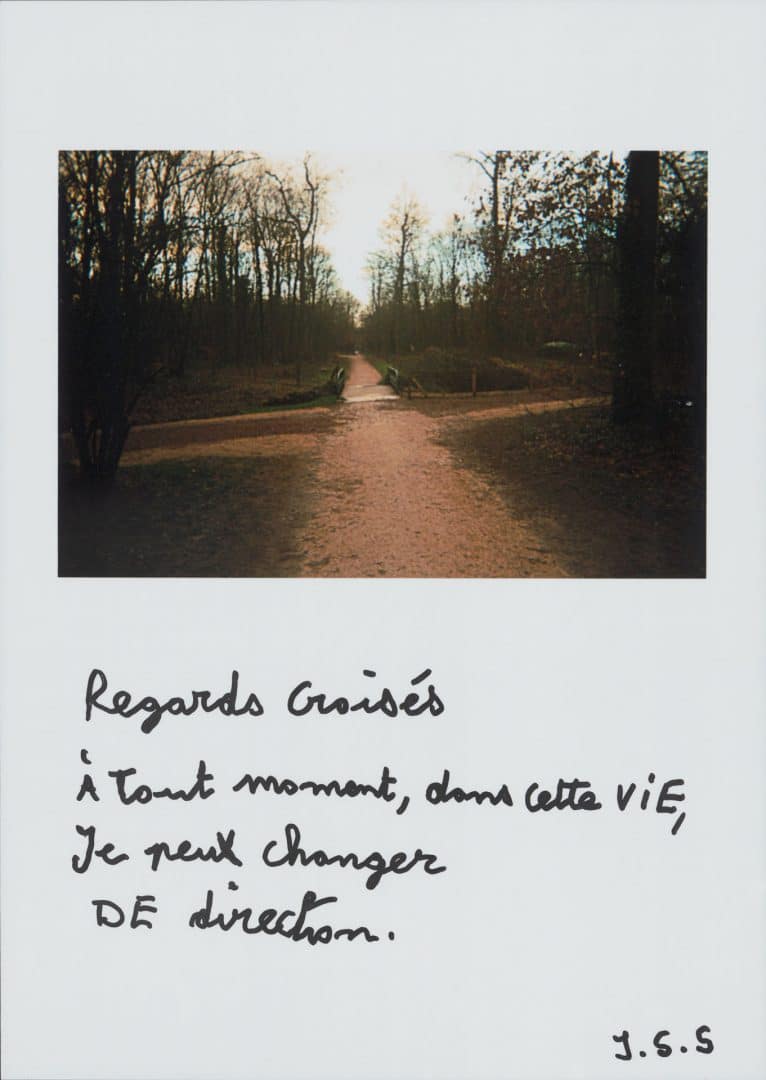 Regards croisés
À tout moment, dans cette ViE,
Je peux changer
DE direction.
J.S.S